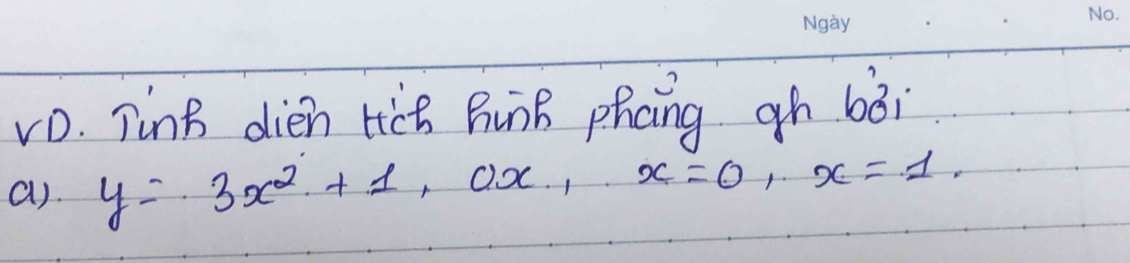 Ngày No.
VD. Tính diện tích hình phẳng gh bởi
a). y = 3x² + 1, Ox, x = 0, x = 1.